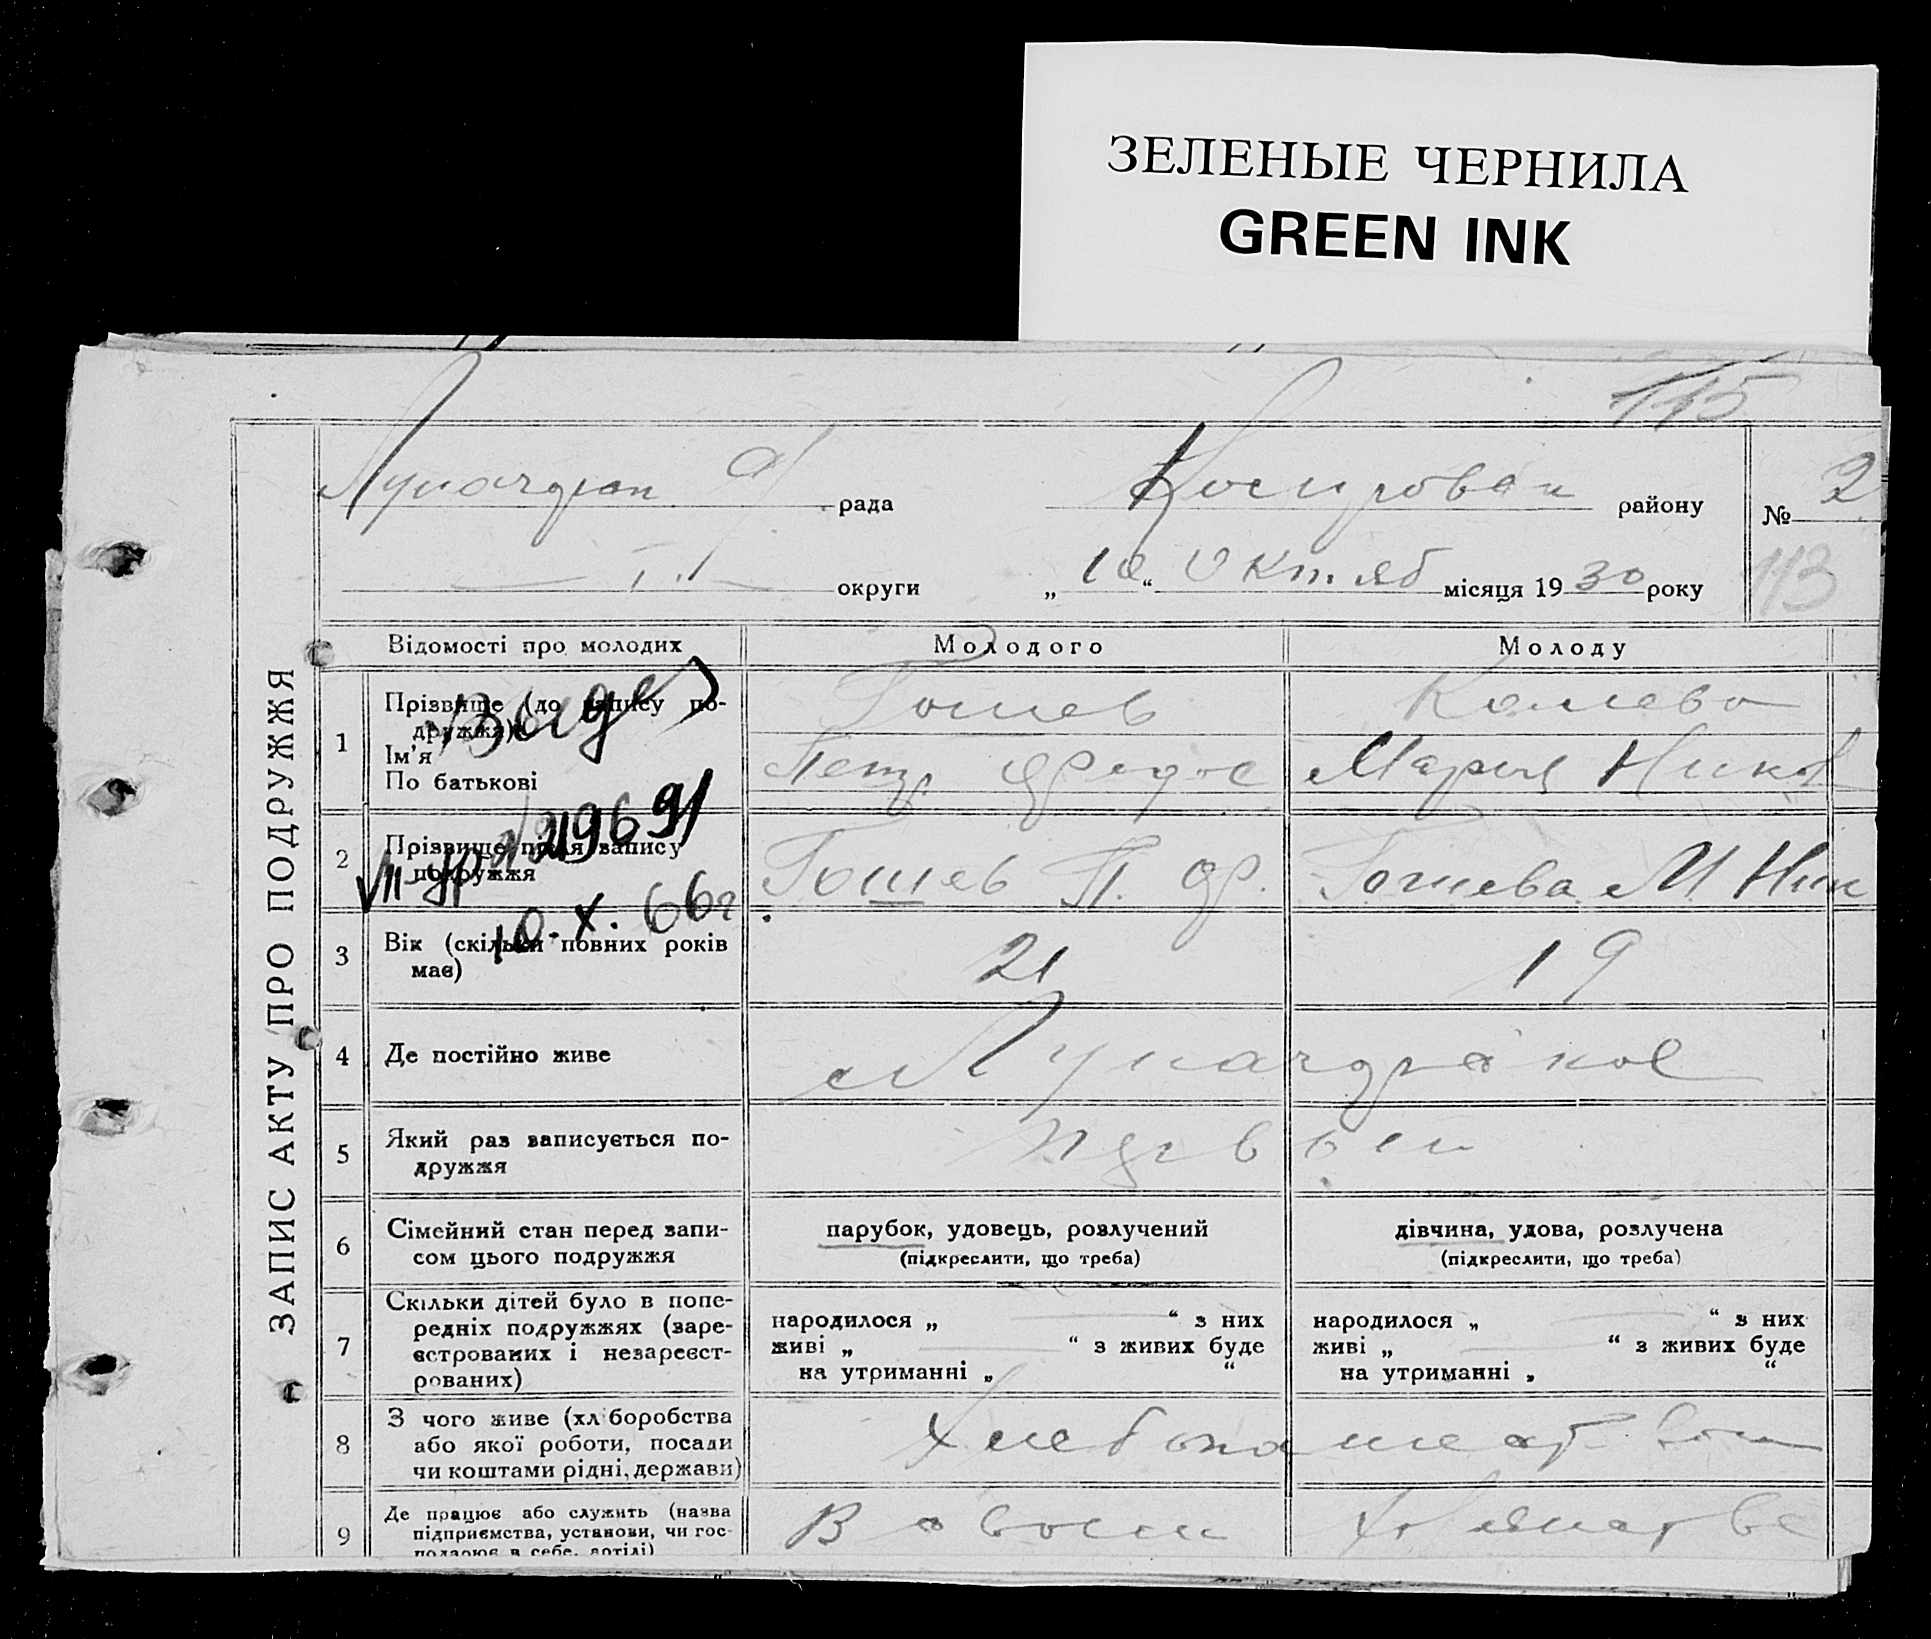 ЗЕЛЕНЫЕ ЧЕРНИЛА
GREEN INK
115
рада
району
№ 2
113
округи
„10“ Октяб місяця 1930 року
ЗАПИС АКТУ ПРО ПОДРУЖЖЯ
Відомості про молодих
Молодого
Молоду
1
Прізвище (до запису по-
дружжя)
Ім'я
По батькові
Гошев
Колева
Петр
Мария Ник
2
Прізвище після запису
подружжя
Гошев П. Ф.
Гошева М Ник
10. X. 66г
3
Вік (скільки повних років
має)
21
19
4
Де постійно живе
5
Який раз записується по-
дружжя
6
Сімейний стан перед запи-
сом цього подружжя
парубок, удовець, розлучений
(підкреслити, що треба)
дівчина, удова, розлучена
(підкреслити, що треба)
7
Скільки дітей було в попе-
редніх подружжях (заре-
єстрованих і незареєст-
рованих)
народилося „ “ з них
живі „ “ з живих буде
на утриманні „ “
народилося „ “ з них
живі „ “ з живих буде
на утриманні „ “
8
З чого живе (хліборобства
або якої роботи, посади
чи коштами рідні, держави)
9
Де працює або служить (назва
підприємства, установи, чи гос-
подарює в себе, артілі)
В своем